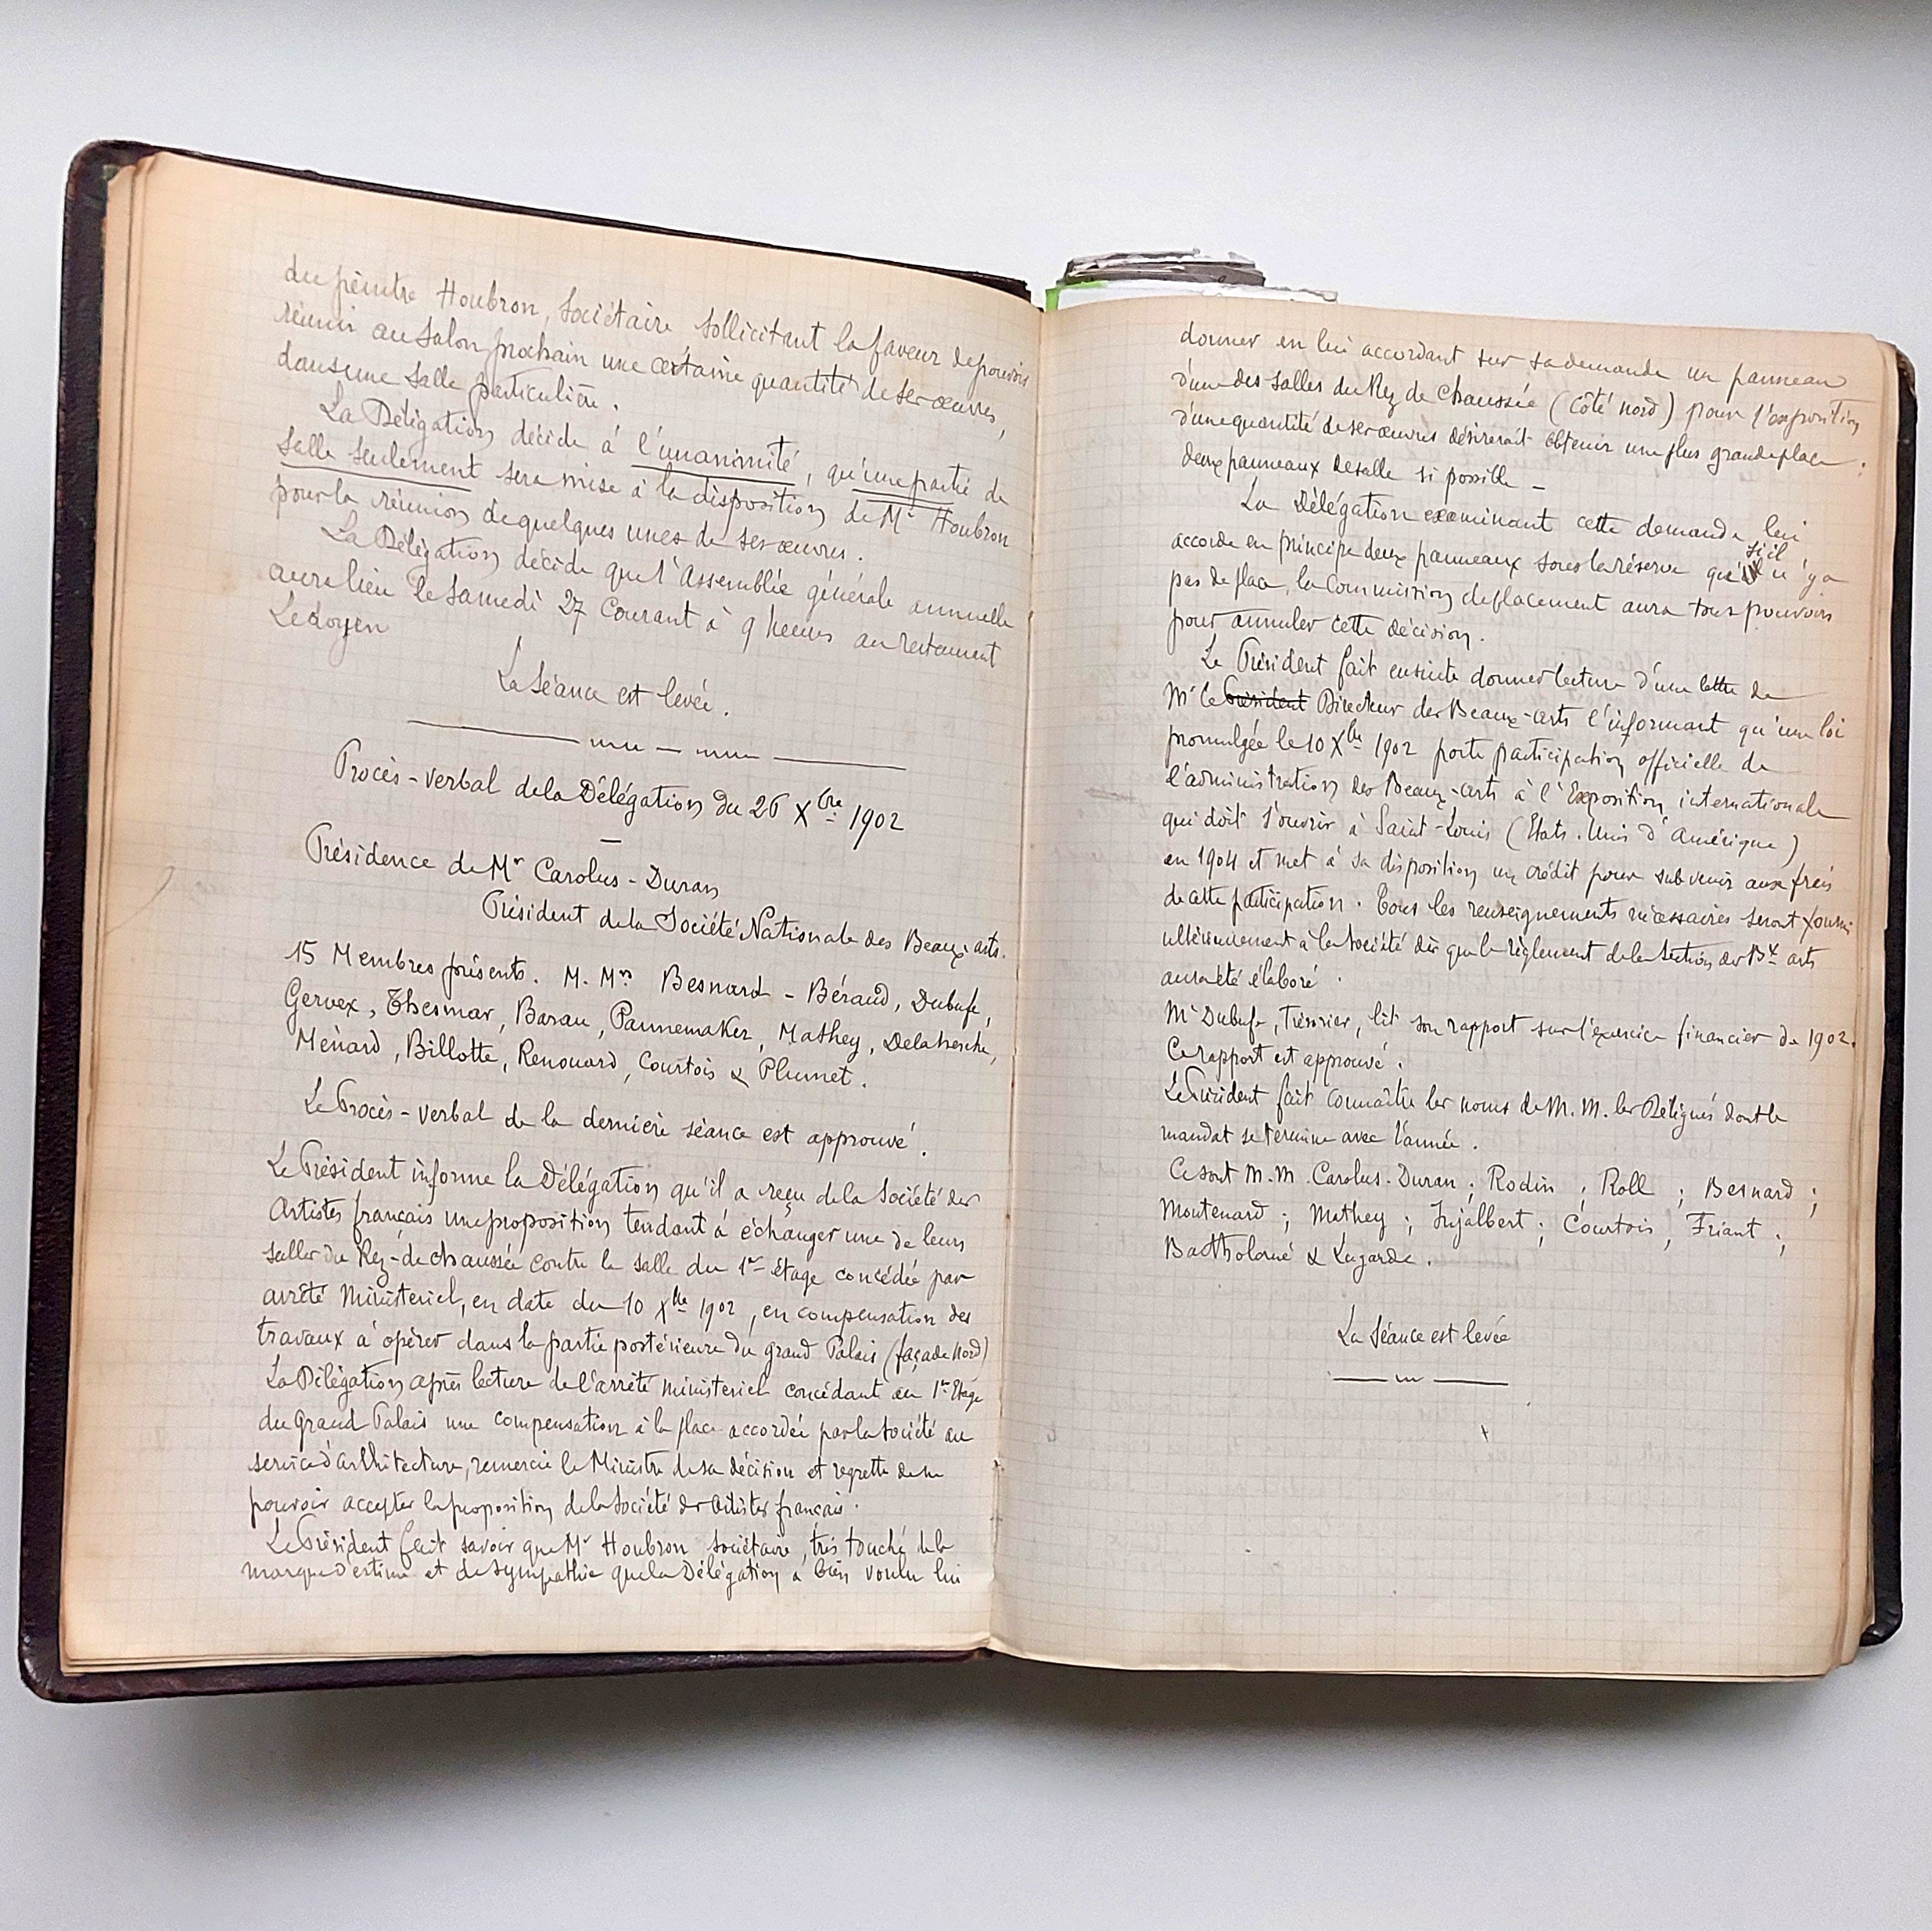 du peintre Houbron, Sociétaire, sollicitant la faveur de pouvoir
réunir au Salon prochain une certaine quantité de ses œuvres,
dans une salle particulière.
La Délégation décide à l'unanimité, qu'une partie de
salle seulement sera mise à la disposition de Mr Houbron
pour la réunion de quelques unes de ses œuvres.
La Délégation décide que l'Assemblée générale annuelle
aura lieu le Samedi 27 Courant à 9 heures au restaurant
Ledoyen
La Séance est levée.
Procès-verbal de la Délégation du 26 Xbre 1902
Présidence de Mr Carolus-Duran
Président de la Société Nationale des Beaux-arts.
15 Membres présents. M. Mrs Besnard - Béraud, Dubufe,
Gervex, Thesmar, Barau, Pannemaker, Mathey, Delaherche,
Ménard, Billotte, Renouard, Courtois & Plumet.
Le Procès-verbal de la dernière séance est approuvé.
Le Président informe la Délégation qu'il a reçu de la Société des
Artistes français une proposition tendant à échanger une de leurs
salles du Rez-de chaussée contre la salle du 1er Etage concédée par
arrêté Ministeriel, en date du 10 Xbre 1902, en compensation des
travaux à opérer dans la partie postérieure du grand Palais (façade Nord)
La Délégation après lecture de l'arrêté ministeriel concédant au 1er Etage
du Grand Palais une compensation à la place accordée par la Société au
service d'architecture, remercie le Ministre de sa décision et regrette de ne
pouvoir accepter la proposition de la Société des Artistes français.
Le Président fait savoir que Mr Houbron sociétaire, très touché de la
marque d'estime et de sympathie que la Délégation a bien voulu lui
donner en lui accordant sur sa demande un panneau
d'une des salles du Rez de Chaussée (Côté nord) pour l'exposition
d'une quantité de ses œuvres désirerait obtenir une plus grande place;
deux panneaux de salle si possible -
La Délégation examinant cette demande lui
accorde en principe deux panneaux sous la réserve que s'il n'y a
pas de place, la Commission de placement aura tous pouvoirs
pour annuler cette décision.
Le Président fait ensuite donner lecture d'une lettre de
Mr le Président Directeur des Beaux-arts l'informant qu'une loi
promulguée le 10 Xbre 1902 porte participation officielle de
l'administration des Beaux-arts à l'Exposition internationale
qui doit s'ouvrir à Saint-Louis (Etats-Unis d'Amérique)
en 1904 et met à sa disposition un crédit pour subvenir aux frais
de cette participation. Tous les renseignements nécessaires seront fournis
ultérieurement à la Société dès que le règlement de la Section des Bx arts
aura été élaboré.
Mr Dubufe, Trésorier, lit son rapport sur l'exercice financier de 1902.
Ce rapport est approuvé.
Le Président fait connaître les noms de M.M. les Délégués dont le
mandat se termine avec l'année.
Ce sont M.M. Carolus-Duran; Rodin; Roll; Besnard;
Montenard; Mathey; Injalbert; Courtois; Friant;
Bartholomé & Lagarde.
La Séance est levée